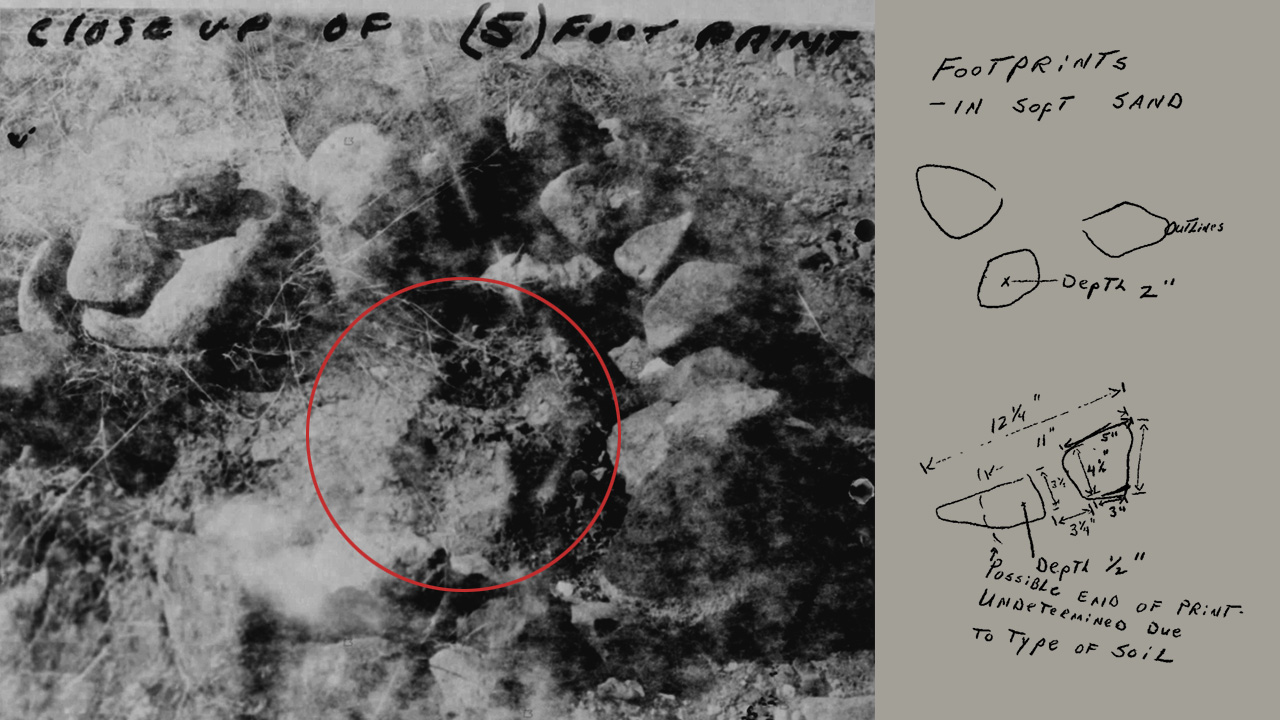 CLOSE UP OF (5) FOOT PRINT
FOOTPRINTS
- IN SOFT SAND
OUTLINES
DEPTH 2"
12 1/4"
11"
5"
3"
3 1/4"
DEPTH 1/2"
POSSIBLE END OF PRINT-
UNDETERMINED DUE
TO TYPE OF SOIL